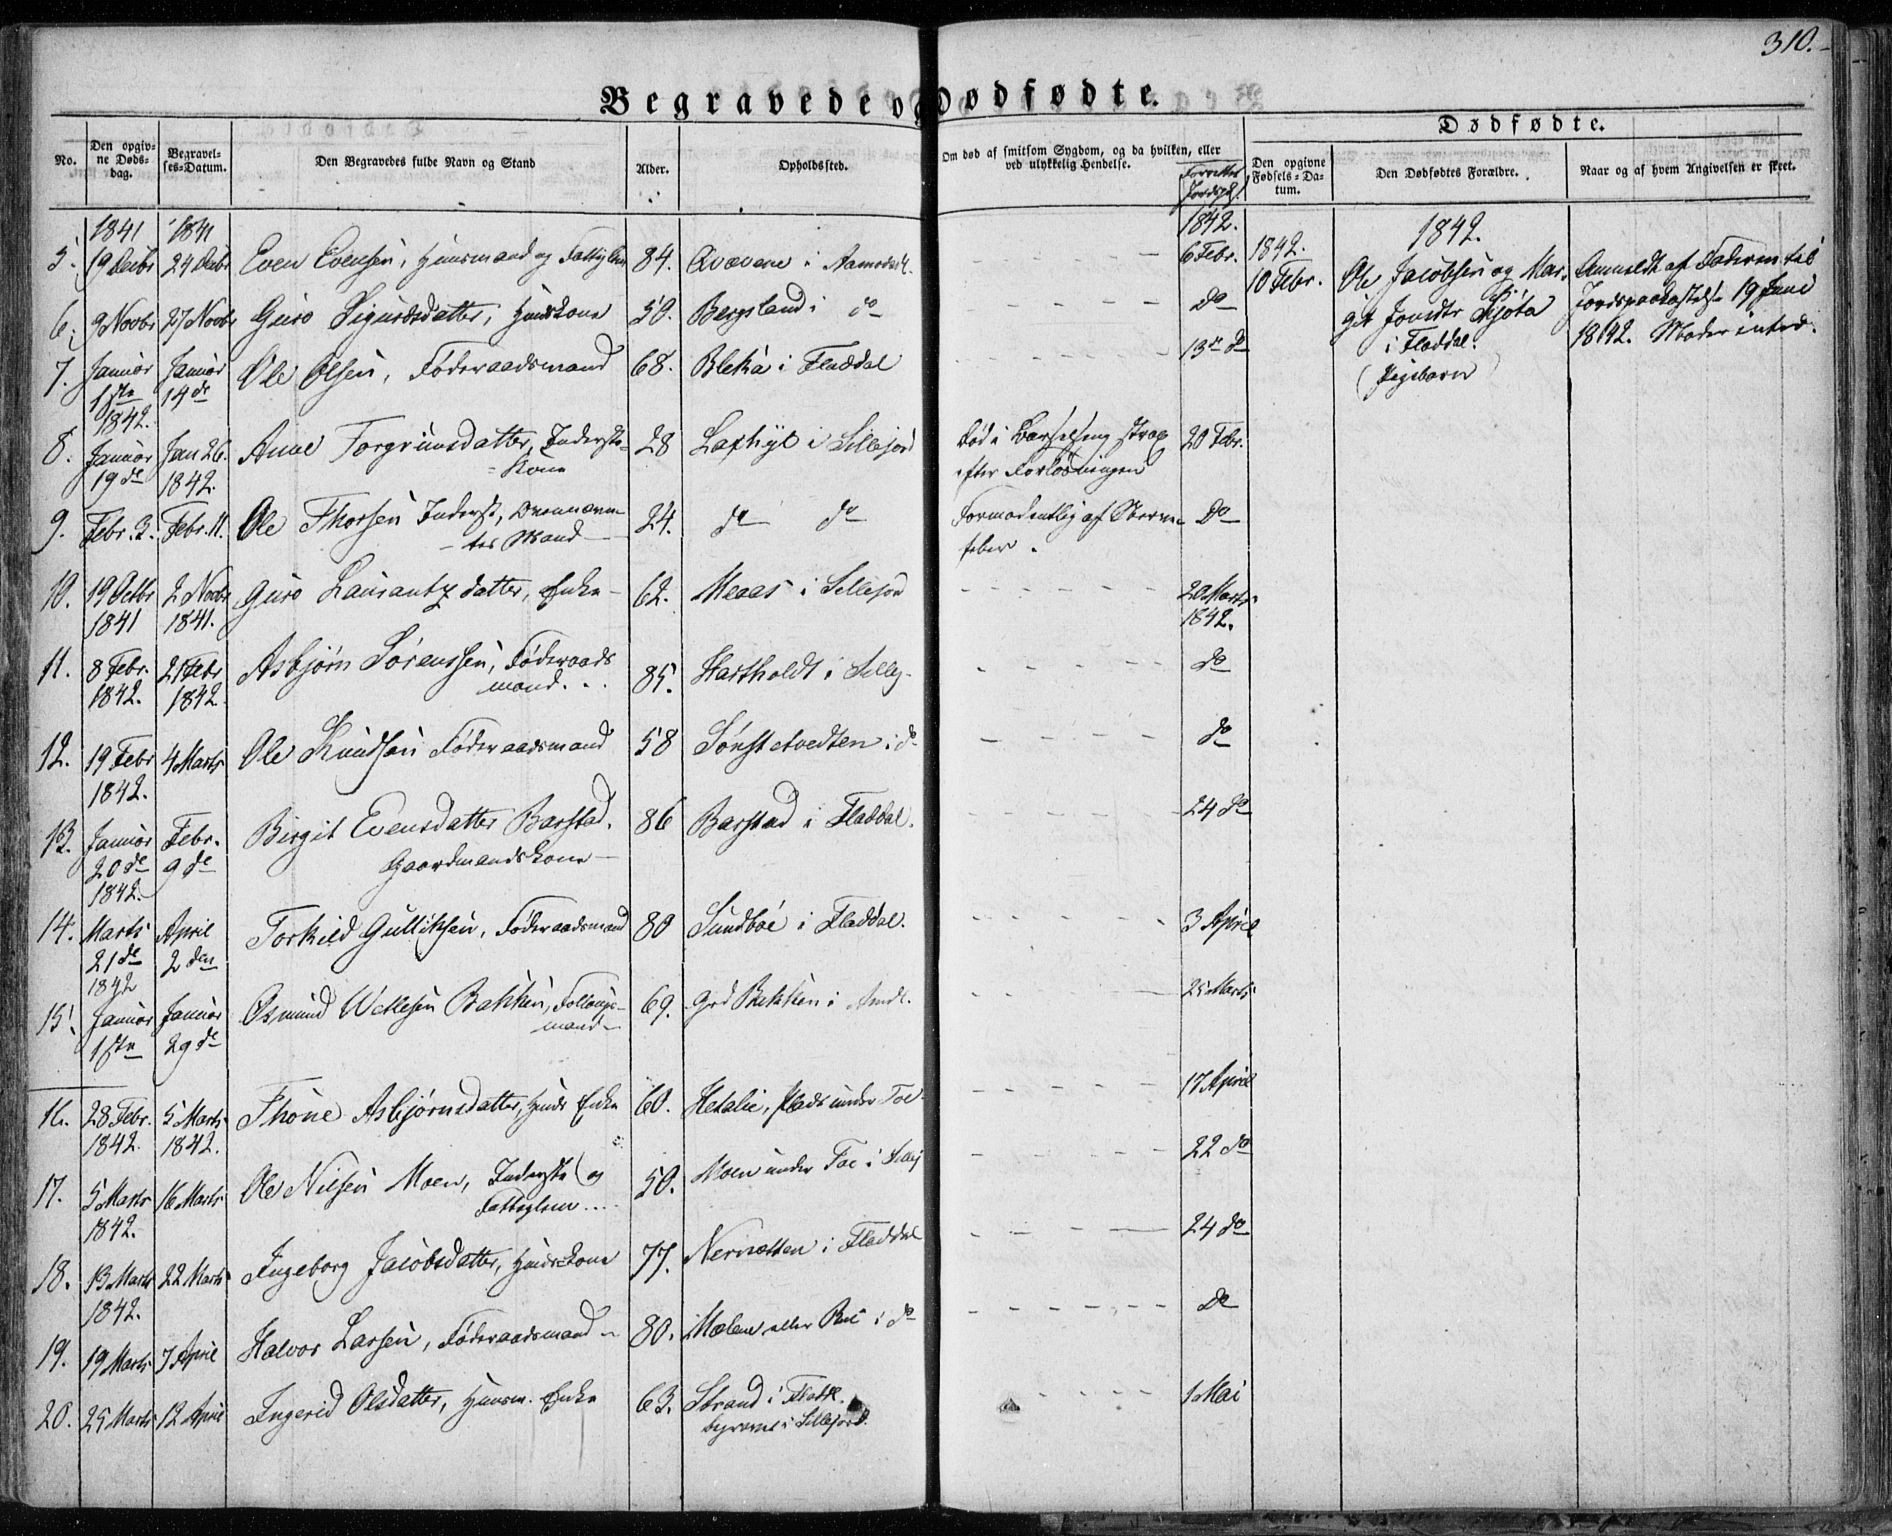 310.
Begravede og Dødfødte.
Dødfødte.
No.
Den opgivne Dødsdag.
Begravelses-Datum.
Den Begravedes fulde Navn og Stand
Alder.
Opholdssted.
Om død af smitsom Sygdom, og da hvilken, eller ved ulykkelig Hendelse.
Forrettet Jordspk.
Den opgivne Fødsels-Datum.
Den Dødfødtes Forældre.
Naar og af hvem Angivelsen er skeet.
1841 1841 1842.
5. 19 Decbr 24 Decbr Even Evensen, Huusmand og Fattiglem 84. Qvævene i Aamodsd. 6 Febr.
6. 9 Novbr 27 Novbr Guro Sigurdsdatter, Huuskone 50. Bergsland i do do
7. Januar 1ste 1842. Januar 14de Ole Olsen, Føderaadsmand 68. Bleka i Fladdal 13de do
8. Januar 19de Jan 26. 1842. Anne Torgrimsdatter, Inderstekone 28 Laxhyl i Sillejord død i Barselseng strax efter Forløsningen 20 Febr.
9. Febr. 3. Febr. 11. Ole Thorsen Inderst, Mand 24. do do Formodentlig af Nervefeber. Do
10. 19 Octbr 1841 2 Novbr 1841. Guro Laurantzdatter, Enke 62. Meaas i Sillejord 20 Marts 1842.
11. 8 Febr. 1842. 21 Febr 1842. Asbjørn Sørenssen, Føderaadsmand. 85. Hartholdt i Sillej. do
12. 19 Febr 1842. 4 Marts Ole Knudsen Føderaadsmand 58 Sønstetvedten i do do
13. Januar 20de 1842. Febr. 9de Birgit Evensdatter Barstad. Gaardmandskone 86 Barstad i Fladdal. 24 do
14. Marts 21de 1842 April 2den Torkild Gulliksen, Føderaadsmand 80 Sundboe i Fladdal. 3 April
15. Januar 1ste Januar 29de Osmund Wetlesen Bakken, mand 69. Grd Bakken i Amdl. 25 Marts
16. 28 Febr. 1842. 5 Marts 1842. Thone Asbjørnsdatter, Huus Enke 60. Hetalie, Plads under Toe 17 April
17. 5 Marts 1842. 16 Marts Ole Nilsen Moen, Inderste og Fattiglem 50. Moen under Toe i Sillej 22 do
18. 13 Marts 1842. 22 Marts Ingeborg Jacobsdatter, Huuskone 77. Nernætten i Fladdal 24 do
19. 19 Marts 7 April Halvor Larsen, Føderaadsmand 80. Moelene eller Bue i do Do
20. 25 Marts 12 April Ingerid Olsdatter, Huusm. Enke 63. Strand i Fladd. begravet i Sillejord. 1 Mai
1842.
1842.
10 Febr.
Ole Jacobsen og Mar-
git Jonsdtr Skjøta
i Fladdal.
(Pigebarn)
Anmeldt af Faderen til
Jordspaakastelse 19 Juni
1842. Moder introd.